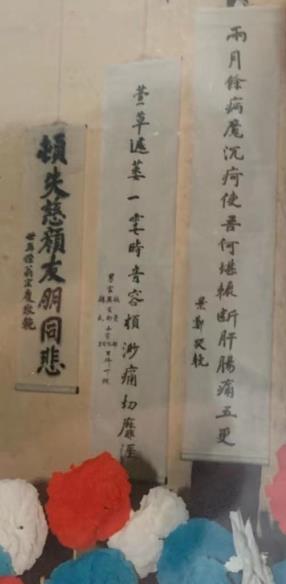 兩月餘病魔沉疴使吾何堪轅斷肝腸痛五更
景鄭敬輓
萱草遽萎一霎時音容頓渺痛切靡涯
頓失慈顏友朋同悲
敬輓